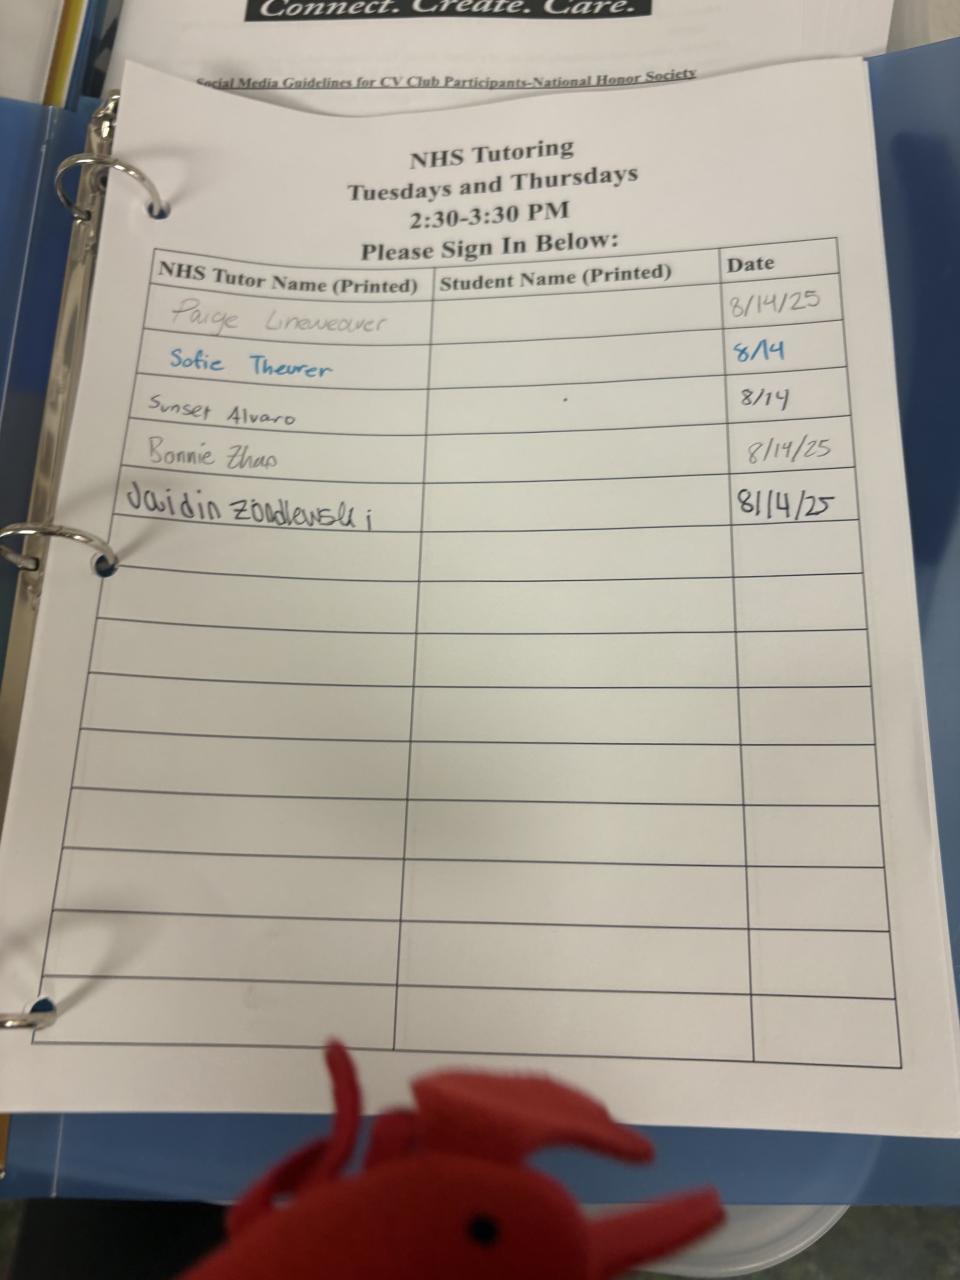 Connect. Create. Care.
Social Media Guidelines for CV Club Participants-National Honor Society
NHS Tutoring
Tuesdays and Thursdays
2:30-3:30 PM
Please Sign In Below:
NHS Tutor Name (Printed) Student Name (Printed) Date
Paige Lineweaver 8/14/25
Sofie Theurer 8/14
Sunset Alvaro 8/14
Bonnie Zhao 8/14/25
Jaidin 8/14/25